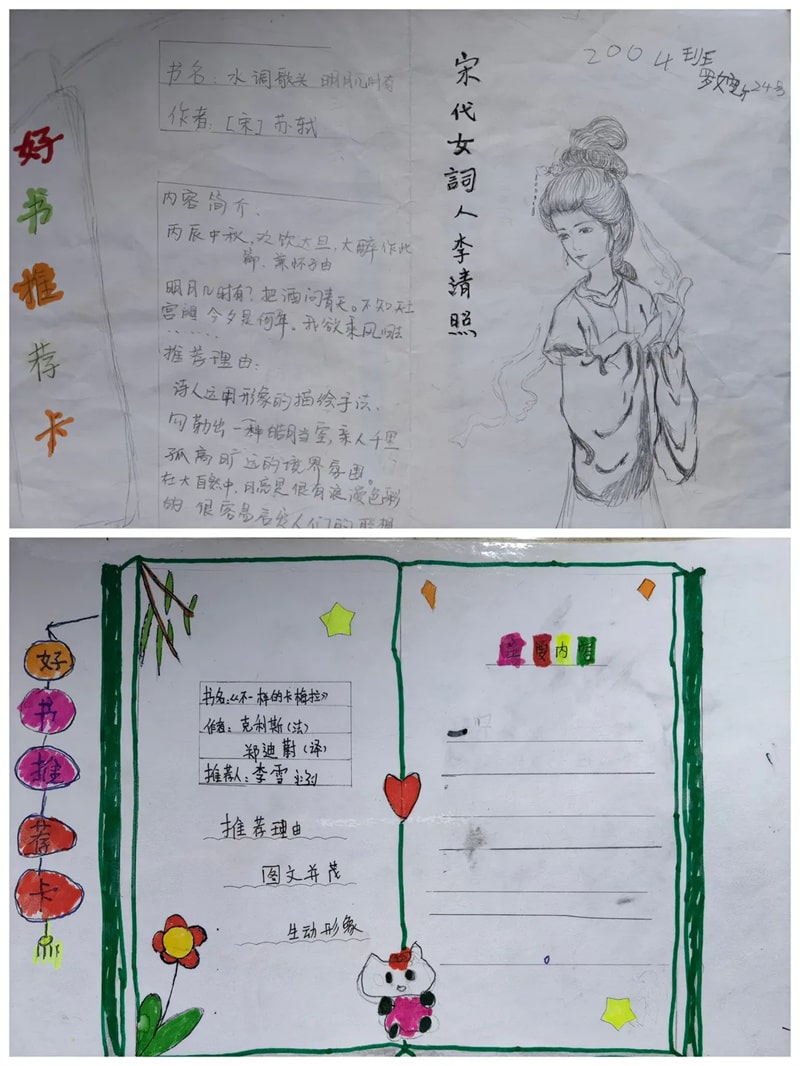 好书推荐卡
书名：水调歌头 明月几时有
作者：[宋]苏轼
内容简介、
丙辰中秋，欢饮达旦，大醉作此
篇、兼怀子由
明月几时有？把酒问青天。不知天上
宫阙 今夕是何年。我欲乘风归去
……
推荐理由：
诗人运用形象的描绘手法、
勾勒出一种皓月当空，亲人千里
孤高旷远的境界氛围。
在大自然中，月亮是很有浪漫色彩
的 很容易启发人们的联想
宋代女詞人李清照
2004班
24号
好书推荐卡
书名：《不一样的卡梅拉》
作者：克利斯（法）
郑迪蔚（译）
推荐人：李雪
推荐理由
图文并茂
生动形象
主要内容